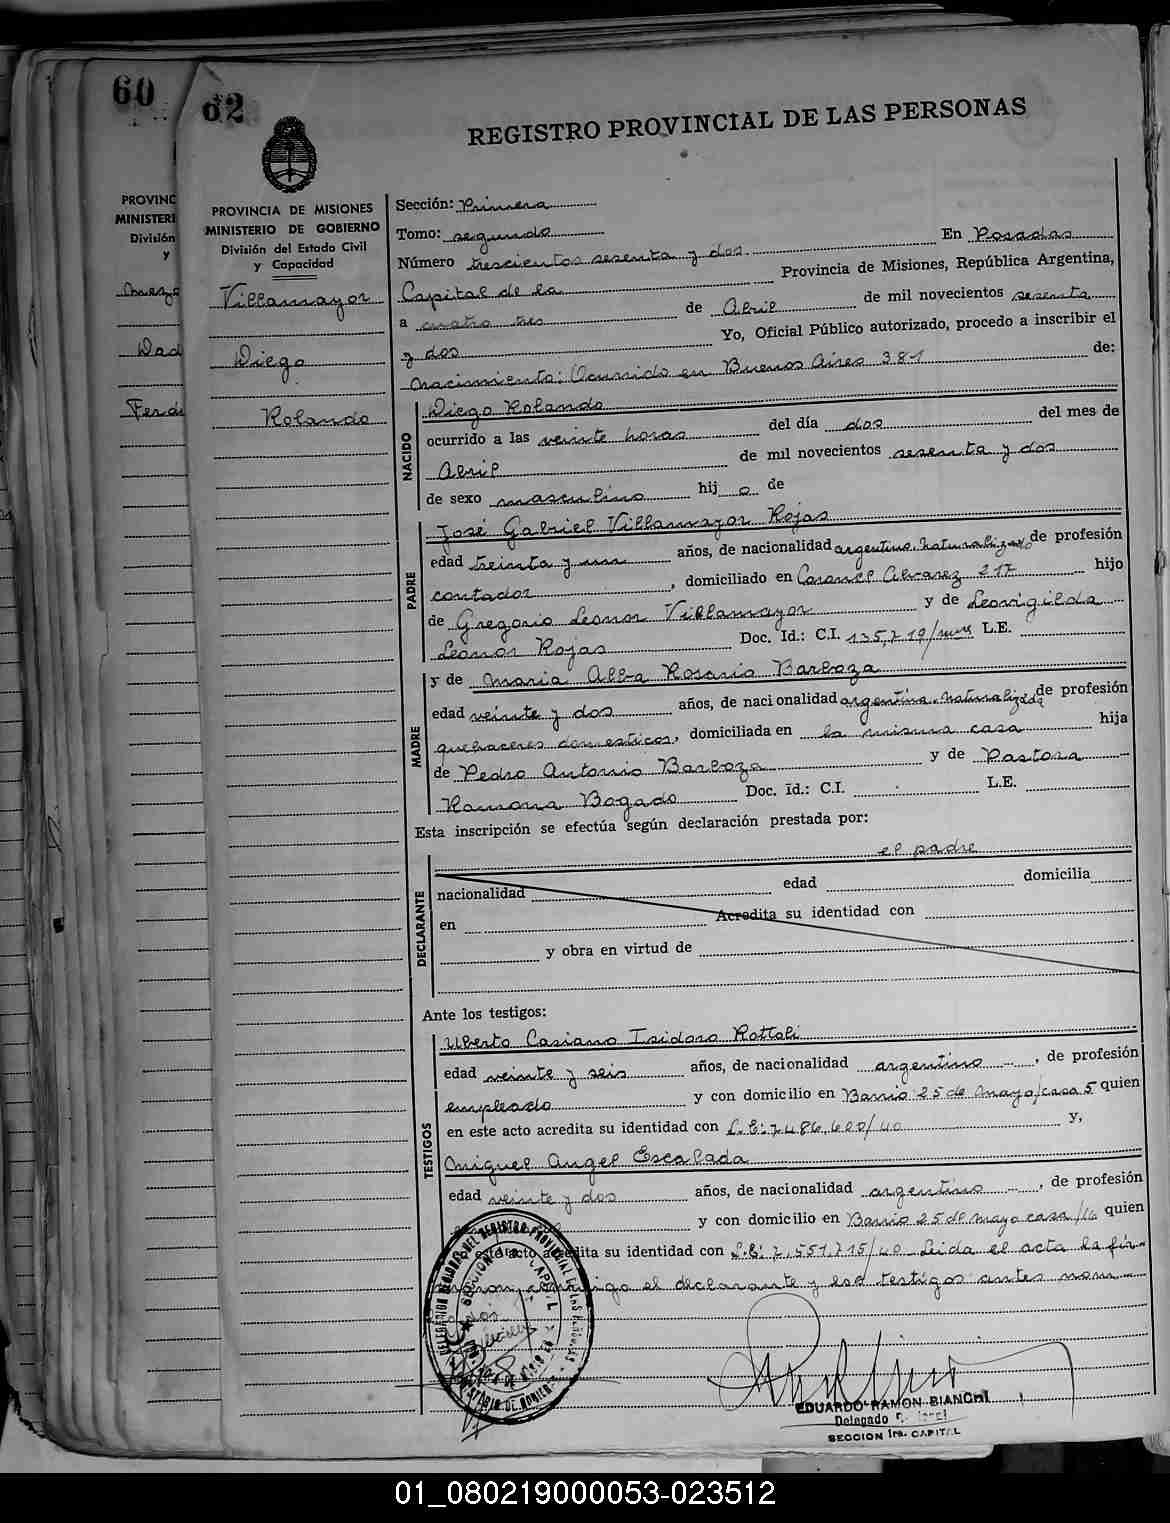 60
62
REGISTRO PROVINCIAL DE LAS PERSONAS
PROVINC
MINISTERI
División
y
Dad
PROVINCIA DE MISIONES
MINISTERIO DE GOBIERNO
División del Estado Civil
y Capacidad
Villamayor
Diego
Rolando
Sección: Primera
Tomo: segundo
Número trescientos sesenta y dos. En Posadas
Capital de la Provincia de Misiones, República Argentina,
a cuatro de Abril de mil novecientos sesenta
y dos Yo, Oficial Público autorizado, procedo a inscribir el
nacimiento: Ocurrido en Buenos Aires 381 de:
NACIDO
Diego Rolando
ocurrido a las veinte horas del día dos del mes de
Abril de mil novecientos sesenta y dos
de sexo masculino hij o de
PADRE
José Gabriel Villamayor Rojas
edad treinta y un años, de nacionalidad argentino naturalizado de profesión
contador, domiciliado en Coronel Alvarez 217 hijo
de Gregorio Leonor Villamayor y de Leovigilda
Leonor Rojas Doc. Id.: C.I. 135,719/mnes L.E.
MADRE
y de Maria Alba Rosario Barboza
edad veinte y dos años, de nacionalidad argentina naturalizada de profesión
quehaceres domesticos, domiciliada en la misma casa hija
de Pedro Antonio Barboza y de Pastora
Ramona Bogado Doc. Id.: C.I. L.E.
Esta inscripción se efectúa según declaración prestada por:
DECLARANTE
el padre
nacionalidad edad domicilia
en Acredita su identidad con
y obra en virtud de
Ante los testigos:
TESTIGOS
Uberto Casiano Isidoro Rottoli
edad veinte y seis años, de nacionalidad argentino, de profesión
empleado y con domicilio en Barrio 25 de Mayo/casa 5 quien
en este acto acredita su identidad con L.E: 7.486,600/40 y,
Miguel Angel Escalada
edad veinte y dos años, de nacionalidad argentino, de profesión
y con domicilio en Barrio 25 de mayo casa/16 quien
este acto acredita su identidad con L.E: 7,551,715/40 Leida el acta la fir-
maron conmigo el declarante y los testigos antes nom-
EDUARDO RAMON BIANCHI
Delegado
SECCION 1ra. CAPITAL
01_080219000053-023512